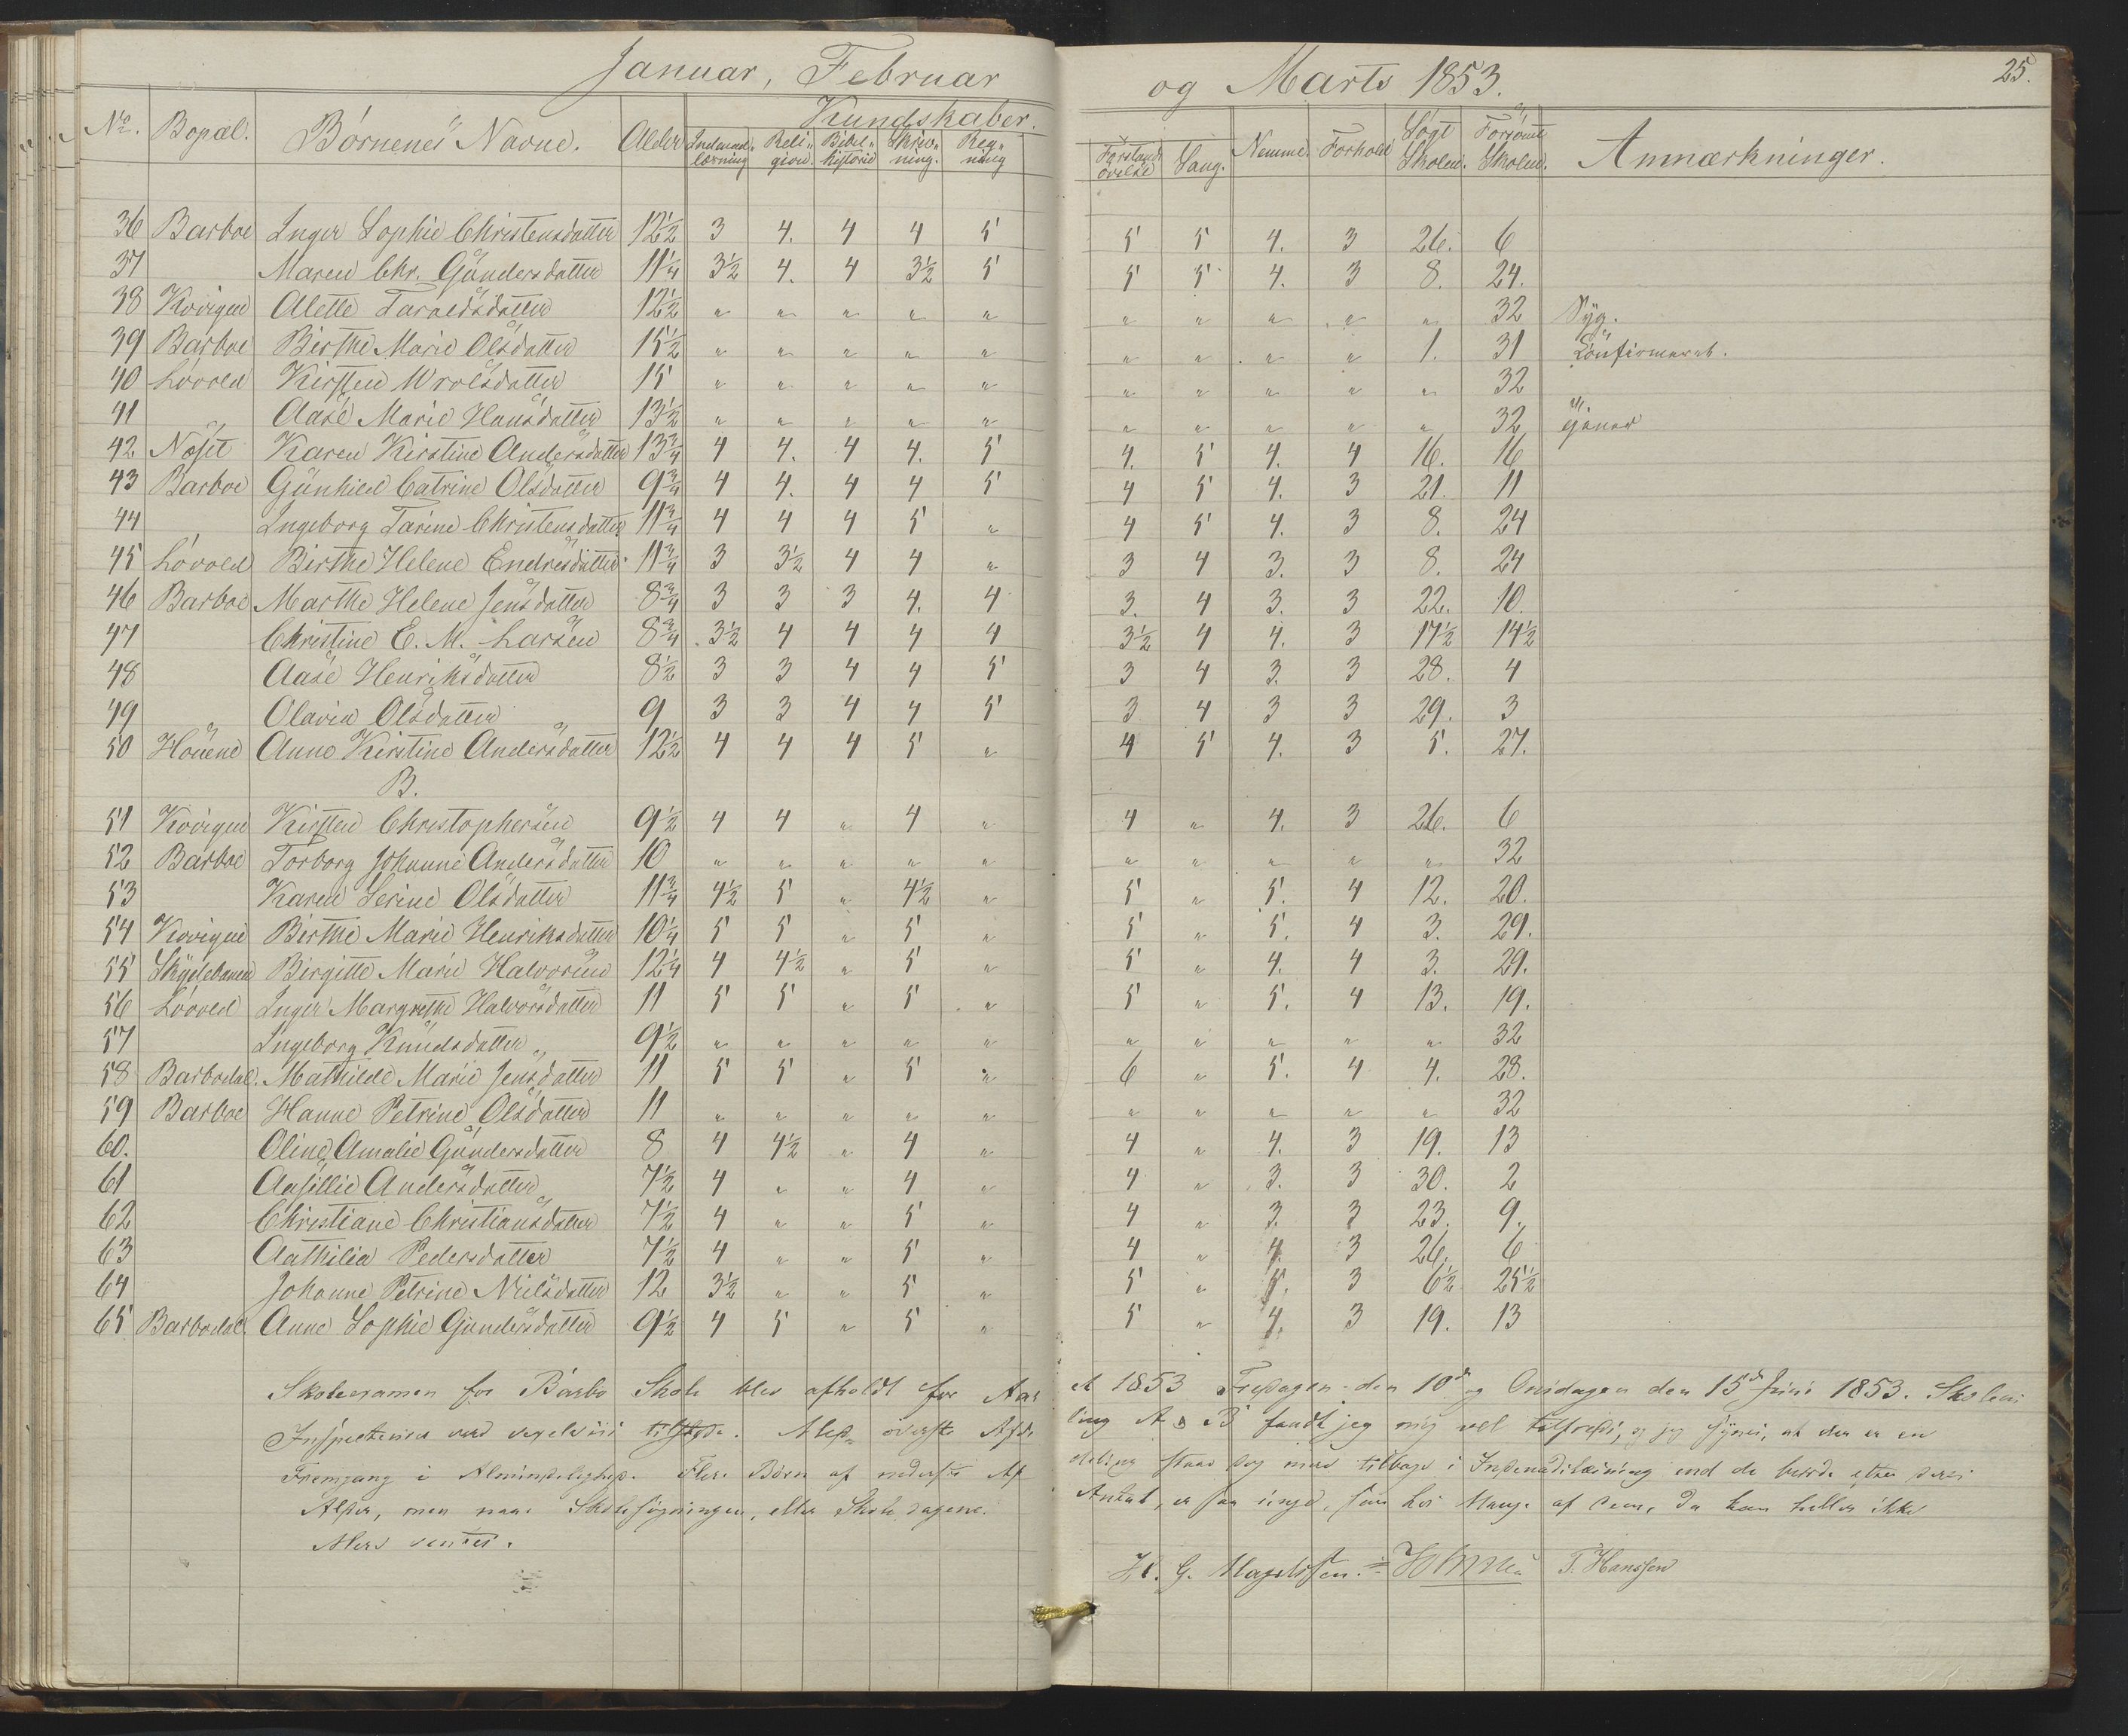 Januar, Februar og Marts 1853. 25.
Kundskaber.
No. Bopæl. Børnenes Navne. Alder Indenad- læsning Reli- gion Bibel- historie Skriv- ning. Reg- ning Forstands øvelse Sang. Nemme. Forhold Søgt Skolen. Forsømt Skolen. Anmærkninger.
36 Barboe Inger Sophie Christensdatter 12½ 3 4. 4 4 5 5 5 4. 3 26. 6
37 Maren Chr. Gundersdatter 11¼ 3½ 4. 4 3½ 5 5 5 4. 3 8. 24.
38 Kovigen Alette Taraldsdatter 12½ " " " " " " " " " " 32 Syg.
39 Barboe Birthe Marie Olsdatter 15½ " " " " " " " " " 1. 31 Confirmeret.
40 Løvold Kirsten Wrolsdatter 15 " " " " " " " " " " 32
41 Aase Marie Hansdatter 13½ " " " " " " " " " " 32
42 Noset Karen Kirstine Andersdatter 13¾ 4 4. 4 4. 5 4. 5 4. 4 16. 16
43 Barboe Gunhild Catrine Olsdatter 9¾ 4 4. 4 4 5 4 5 4. 3 21. 11
44 Ingeborg Tarine Christensdatter 11¾ 4 4 4 5 " 4 5 4. 3 8. 24
45 Løvold Birthe Helene Endresdatter 11¾ 3 3½ 4 4 " 3 4 3. 3 8. 24
46 Barboe Marthe Helene Jensdatter 8¾ 3 3 3 4. 4 3. 4 3. 3 22. 10.
47 Christine E. M. Larsen 8¾ 3½ 4 4 4 4 3½ 4 4. 3 17½ 14½
48 Aase Henriksdatter 8½ 3 3 4 4 5 3 4 3. 3 28. 4
49 Olavia Olsdatter 9 3 3 4 4 5 3 4 3 3 29. 3
50 Houene Anne Kirstine Andersdatter 12½ 4 4 4 5 " 4 5 4. 3 5. 27.
B.
51 Kovigen Kirsten Christophersen 9½ 4 4 " 4 " 4 " 4. 3 26. 6
52 Barboe Torborg Johanne Andersdatter 10 " " " " " " " " " " 32
53 Karen Serine Olsdatter 11¾ 4½ 5 " 4½ " 5 " 5. 4 12. 20.
54 Kovigen Birthe Marie Henriksdatter 10¼ 5 5 " 5 " 5 " 5. 4 3. 29.
55 Skydebanen Birgitte Marie Halvorsen 12¼ 4 4½ " 5 " 5 " 4. 4 3. 29.
56 Løvold Inger Margrethe Halvorsdatter 11 5 5 " 5 " 5 " 5. 4 13. 19.
57 Ingeborg Knudsdatter 9½ " " " " " " " " " " 32
58 Barbodal. Mathilde Marie Jensdatter 11 5 5 " 5 " 6 " 5. 4 4. 28.
59 Barboe Hanne Petrine Olsdatter 11 " " " " " " " " " " 32
60. Oline Amalie Gundersdatter 8 4 4½ " 4 " 4 " 4. 3 19. 13
61 Aasillie Andersdatter 7½ 4 " " 4 " 4 " 3. 3 30. 2
62 Christiane Christiansdatter 7½ 4 " " 5 " 4 " 3. 3 23. 9.
63 Aathilia Pedersdatter 7½ 4 " " 5 " 4 " 4. 3 26. 6
64 Johanne Petrine Nielsdatter 12 3½ " " 5 " 5 " 5. 3 6½ 25½
65 Barbodal. Anne Sophie Gundersdatter 9½ 4 5 " 5 " 5 " 4. 3 19. 13
Skoleexamen for Barbo Skole blev afholdt for Aaret 1853 Fredagen den 10de og Onsdagen den 15de Juni 1853. Skolens
Inspecteurer tilstede. øverste Afdeling A & B fandt jeg mig vel tilfreds, og jeg synes, at der er en
Fremgang i Almindelighed. Flere Børn af nederste Afdeling staae dog mere tilbage i Indenadslæsning end de burde efter deres
Alder, men naar Skolesøgningen, eller Skoledagene. Antal, er saa ringe, som hos Mange af dem, da kan heller ikke
Mere ventes.
T. Hanssen